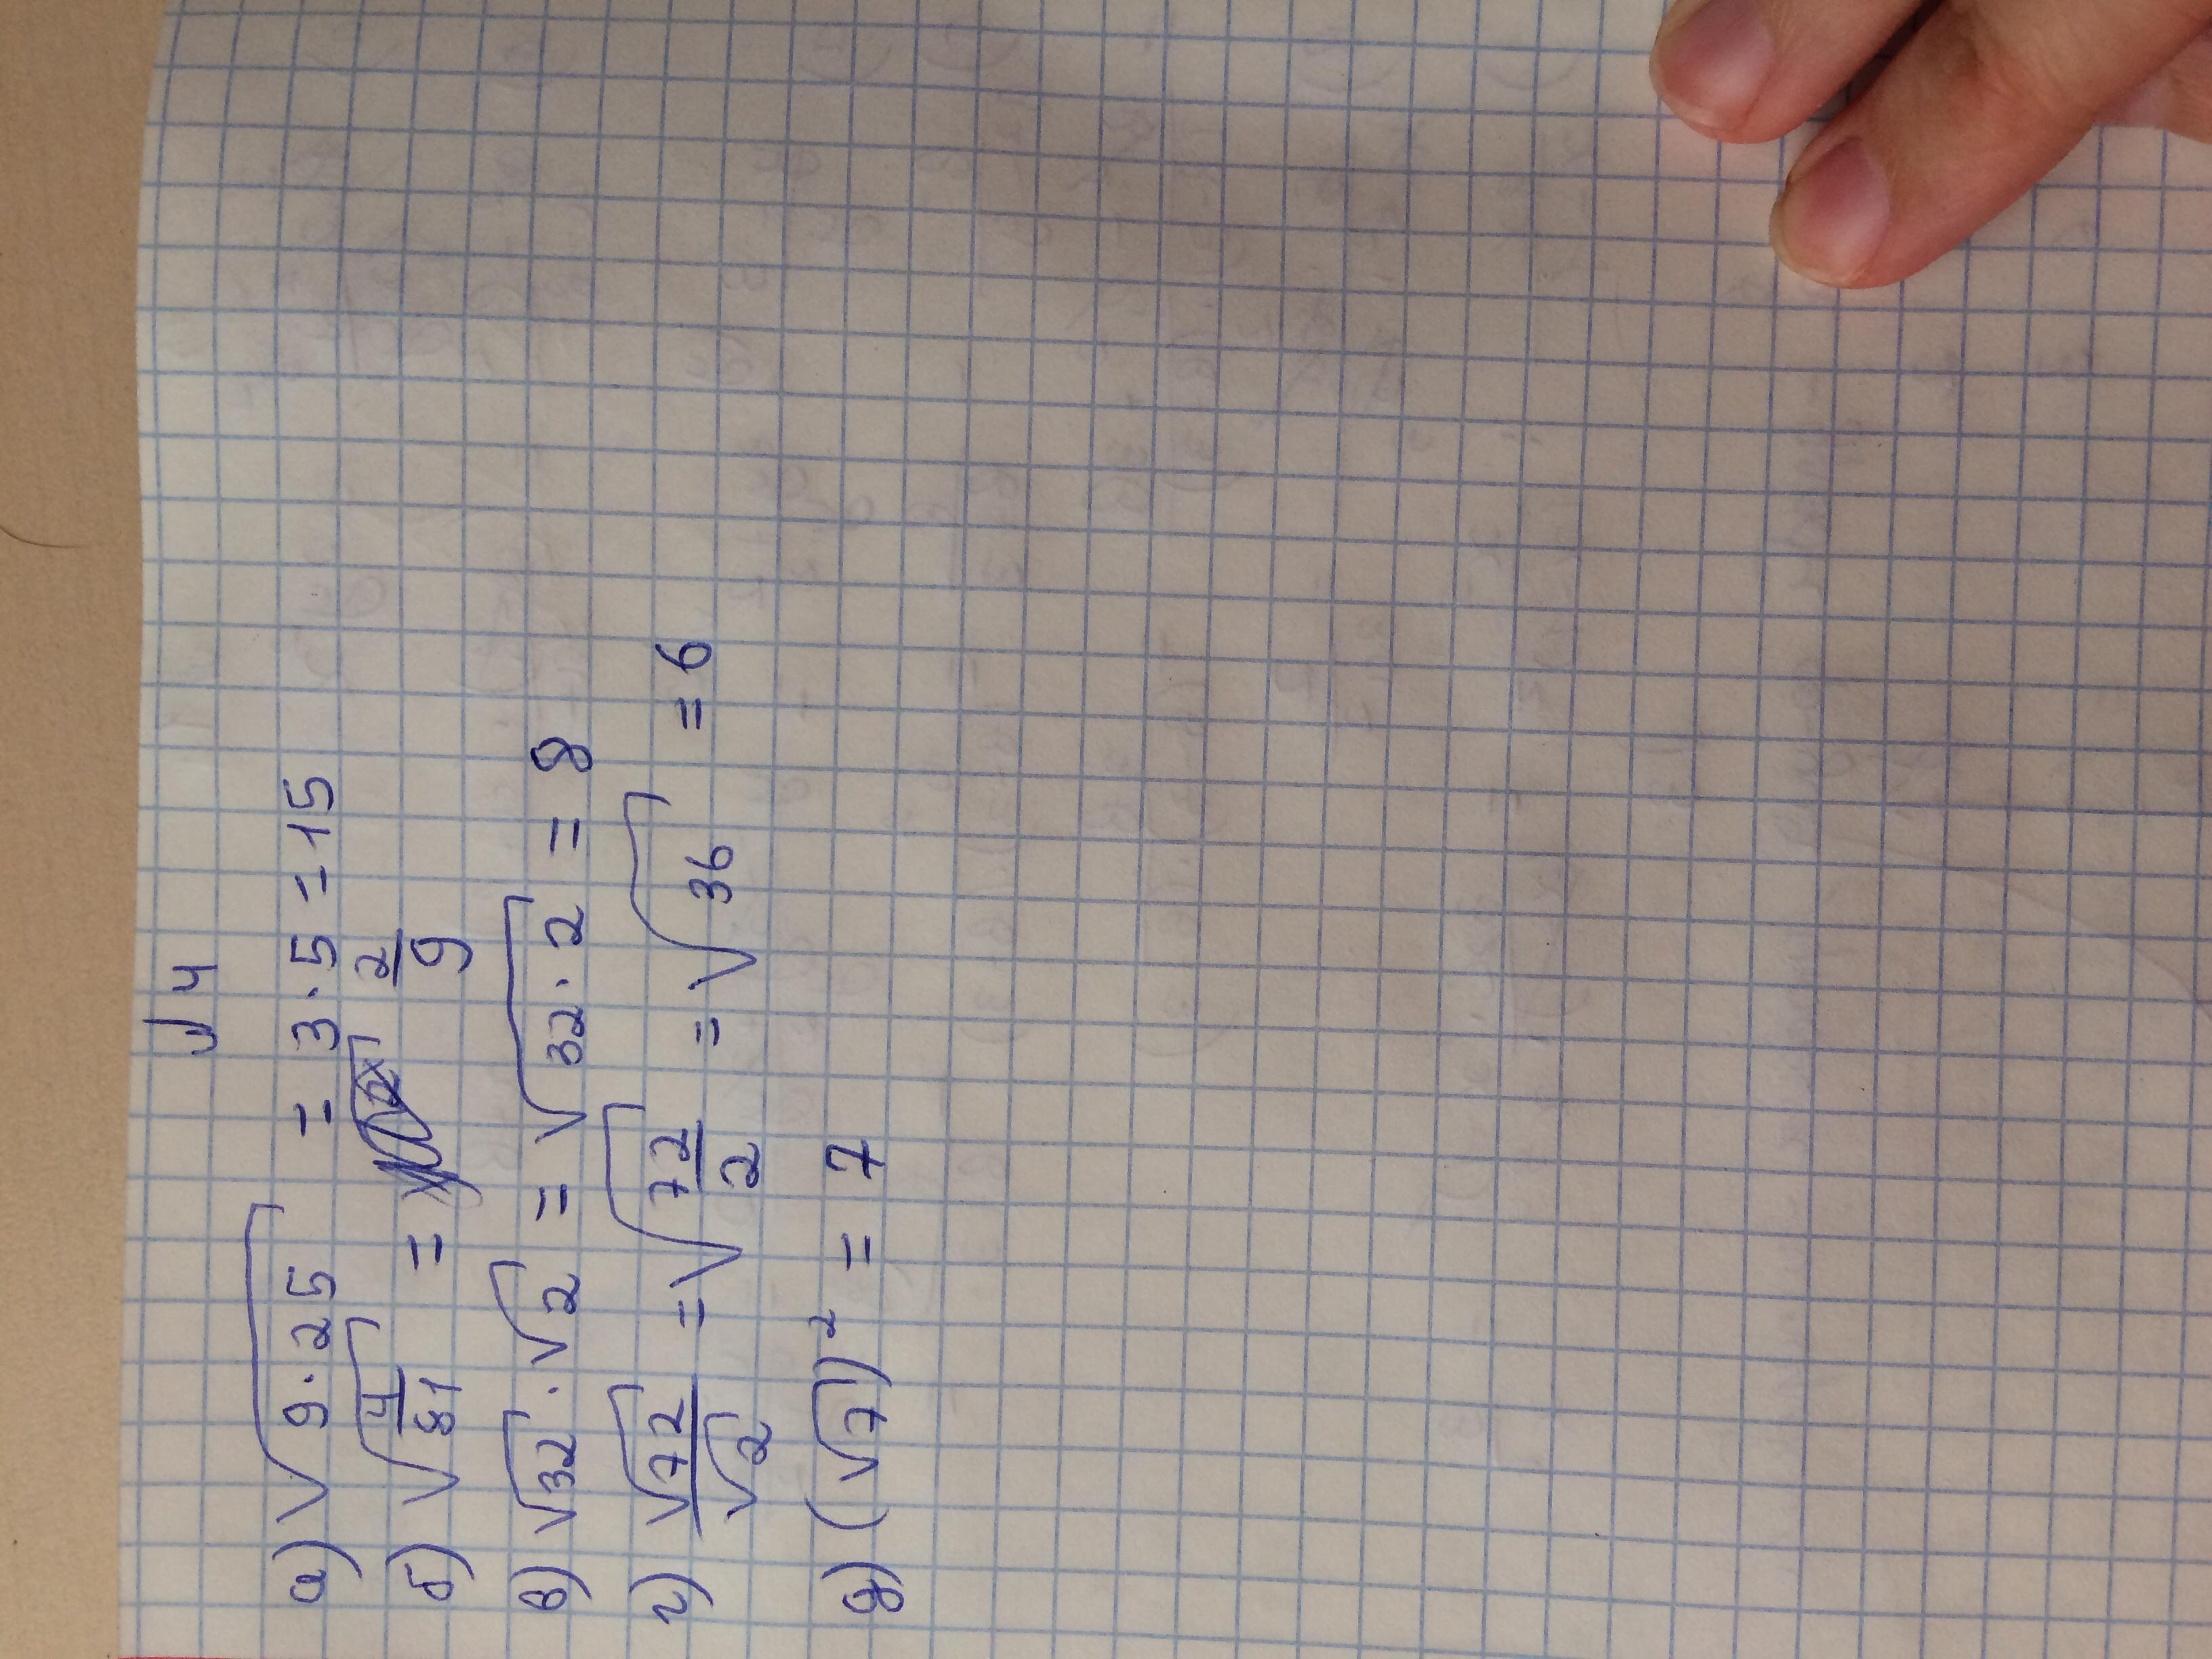 № 4
а) √9·25 = 3·5 = 15
б) √4/81 = 2/9
в) √32 · √2 = √32·2 = 8
г) √72/√2 = √72/2 = √36 = 6
д) (√7)² = 7